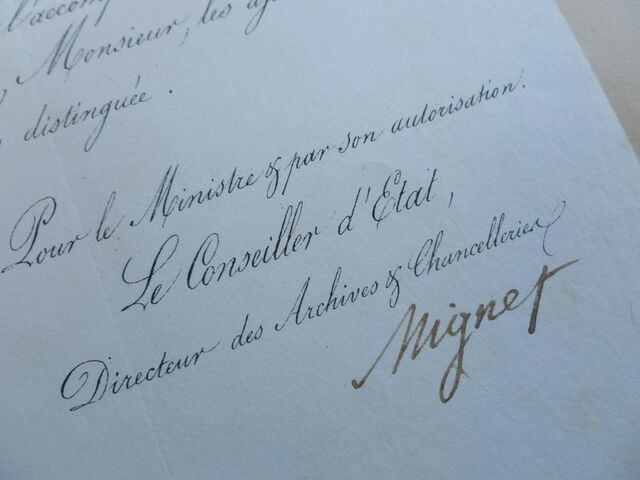 l'accomp
Monsieur, les ag
distinguée.
Pour le Ministre & par son autorisation.
Le Conseiller d'Etat,
Directeur des Archives & Chancelleries
Mignet